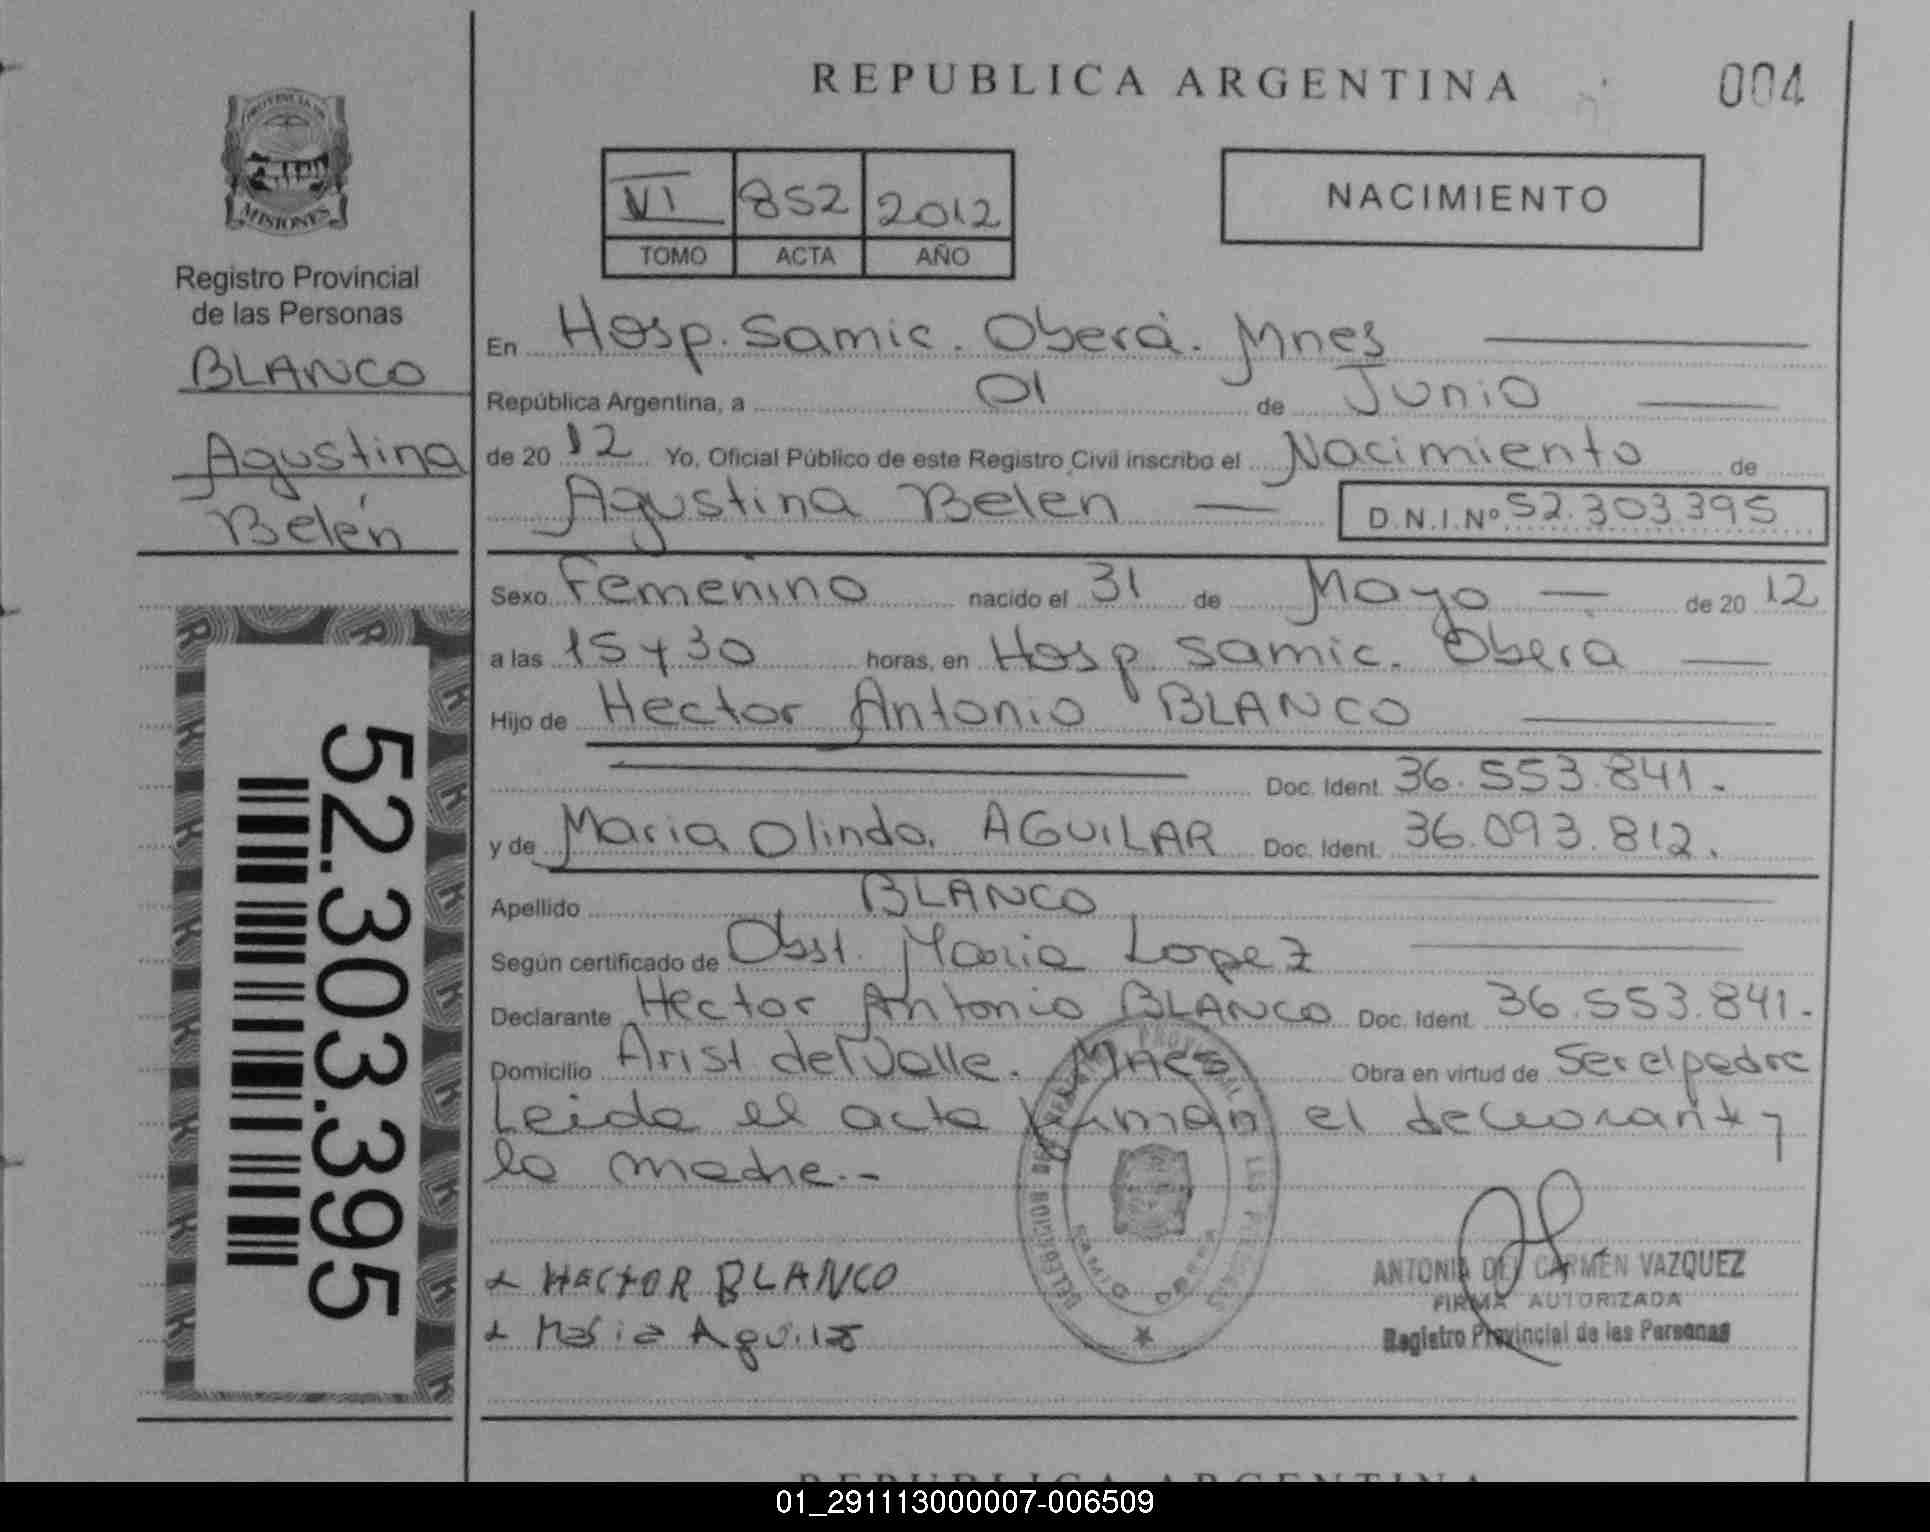 REPUBLICA ARGENTINA
004
PROVINCIA DE
MISIONES
Registro Provincial
de las Personas
BLANCO
Agustina
Belén
52.303.395
VI 852 2012
TOMO ACTA AÑO
NACIMIENTO
En Hosp. Samic. Oberá. Mnes
República Argentina, a 01 de Junio
de 20 12 Yo, Oficial Público de este Registro Civil inscribo el Nacimiento de
Agustina Belén D.N.I.Nº 52.303.395
Sexo Femenino nacido el 31 de Mayo de 20 12
a las 15 y 30 horas, en Hosp. Samic. Oberá
Hijo de Hector Antonio BLANCO
Doc. Ident. 36.553.841.
y de Maria Olinda. AGUILAR Doc. Ident. 36.093.812.
Apellido BLANCO
Según certificado de Obst. Maria Lopez
Declarante Hector Antonio BLANCO Doc. Ident. 36.553.841.
Domicilio Arist del Valle. Mnes Obra en virtud de Ser el padre
Leida el acta firman el declorante y
la madre.-
HECTOR BLANCO
Maria Aguilar
ANTONIA DEL CARMEN VAZQUEZ
FIRMA AUTORIZADA
Registro Provincial de las Personas
REPUBLICA ARGENTINA
01_291113000007-006509